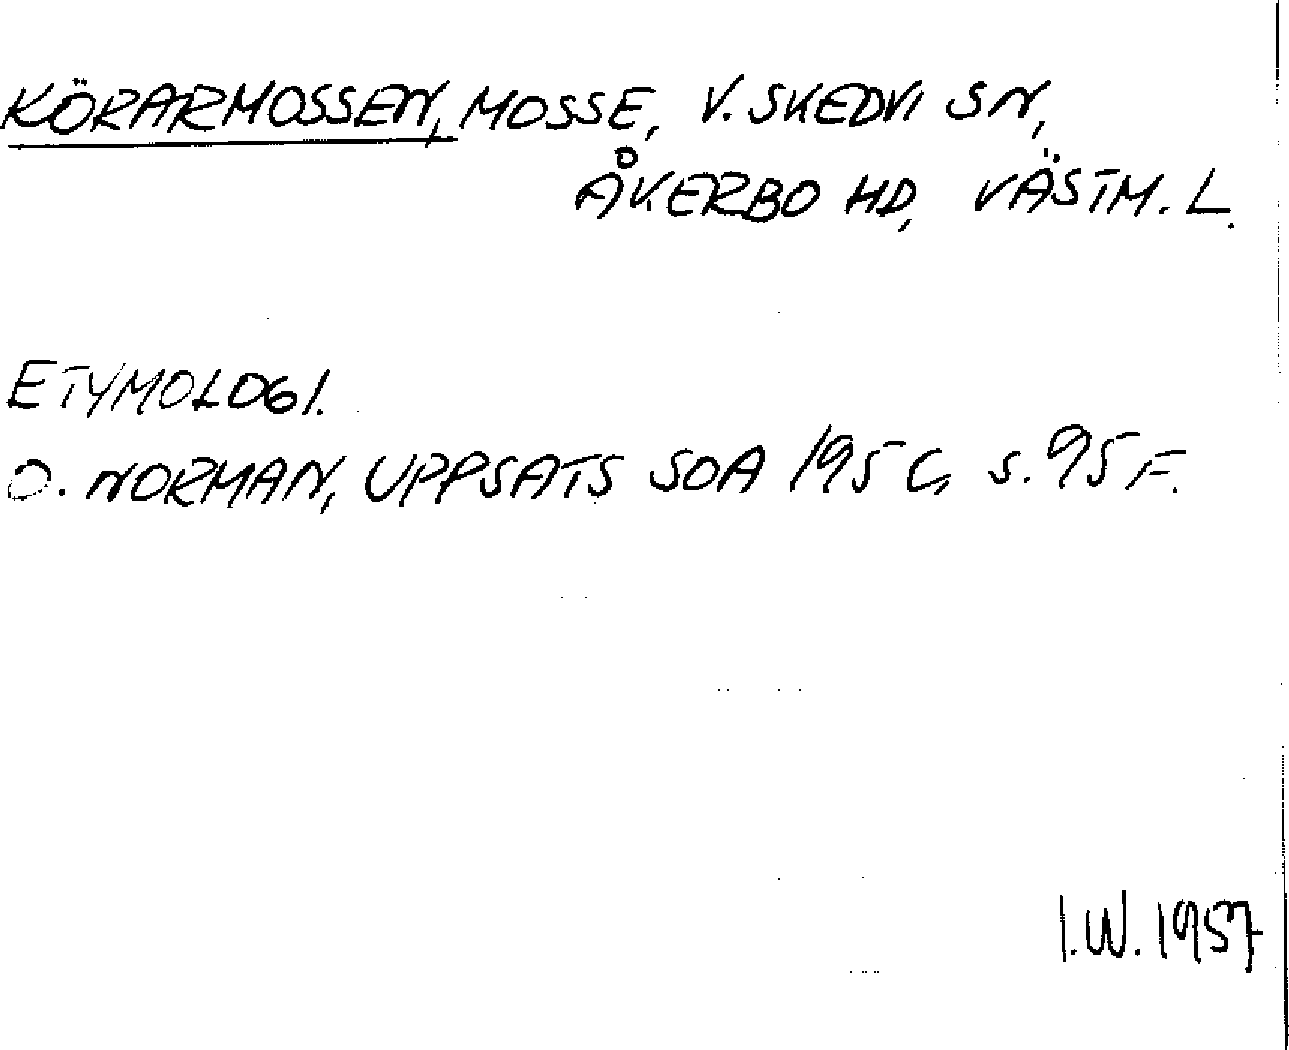 KÖRARMOSSEN, MOSSE, V. SKEDVI SN,
ÅKERBO HD, VÄSTM. L.
ETYMOLOGI.
O. NORMAN, UPPSATS SOA 195 , S. 95 F.
I.W. 1957